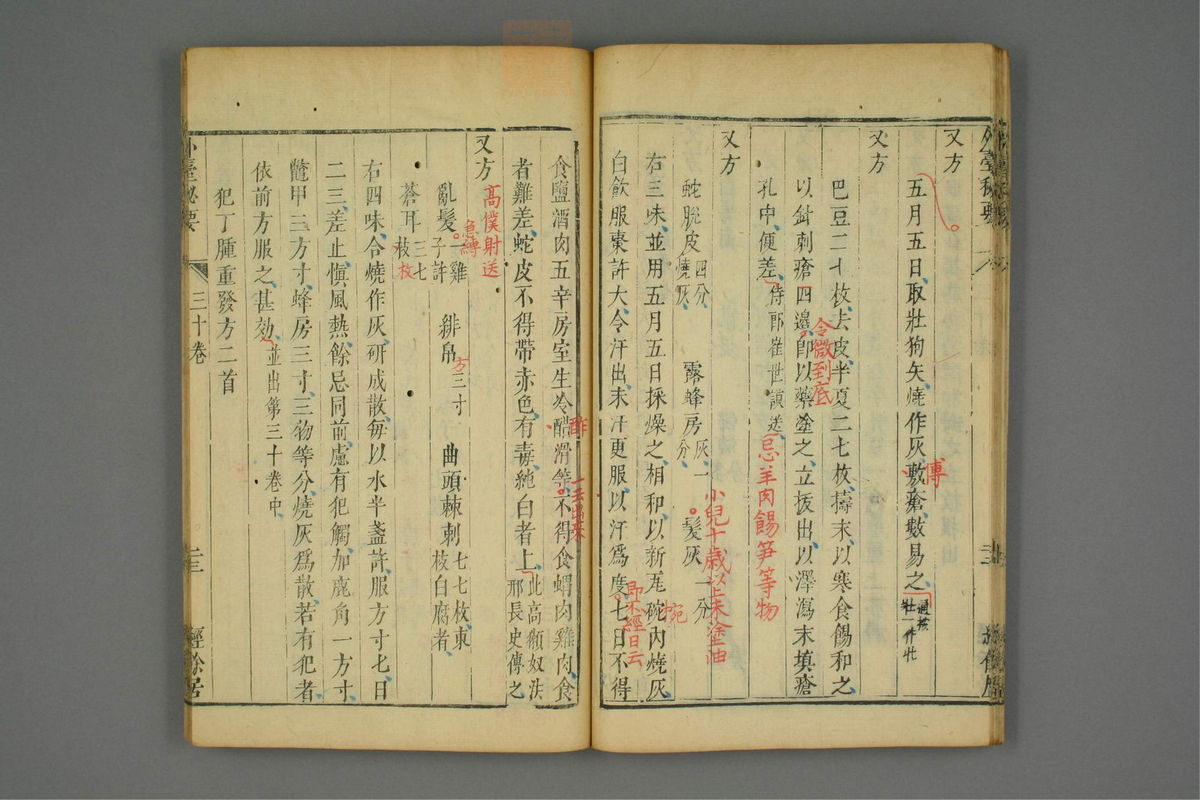 又方
五月五日取壯狗矢燒作灰敷瘡數易之
傅
壯一作牡
又方
巴豆二十枚去皮半夏二七枚擣末以寒食餳和之
以針刺瘡四邊卽以藥塗之立拔出以澤瀉末填瘡
令微到底
孔中便差侍郎崔世謨送
忌羊肉餳笋等物
又方
蛇脫皮四分燒灰 露蜂房灰一分 髮灰一分
小兒十歲以上末塗油
右三味並用五月五日採燥之相和以新瓦碗内燒灰
白飲服棗許大令汗出末汗更服以汗爲度七日不得
外臺秘要
三十卷
二三
經餘居
食鹽酒肉五辛房室生冷醋滑等不得食蝟肉雞肉食
酢
者難差蛇皮不得帶赤色有毒純白者上此高顙奴法邢長史傳之
又方
高僕射送
亂髮一雞子許 緋帛三寸 曲頭棘刺七七枚東枝白腐者
急縛
方
蒼耳三七枝
枚
右四味合燒作灰研成散每以水半盞許服方寸七日
二三差止愼風熱餘忌同前慮有犯觸加鹿角一方寸
鼈甲三方寸蜂房三寸三物等分燒灰爲散若有犯者
依前方服之甚効並出第三十卷中
犯丁腫重發方二首